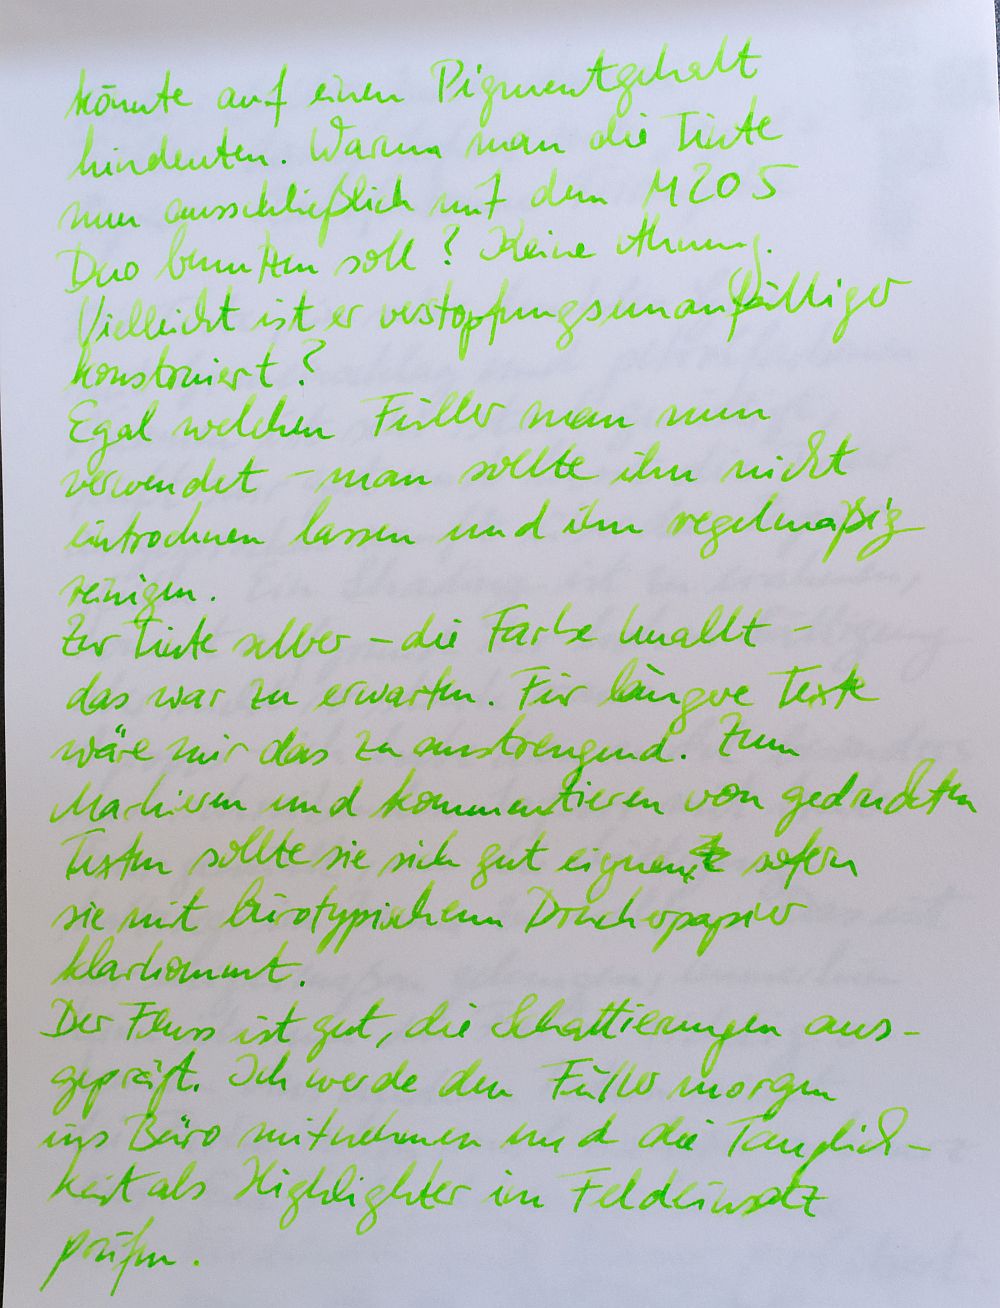 könnte auf einen Pigmentgehalt
hindeuten. Warum man die Tinte
nun ausschließlich mit dem M205
Duo benutzen soll? Keine Ahnung.
Vielleicht ist er verstopfungsunanfälliger
konstruiert?
Egal welchen Füller man nun
verwendet – man sollte ihn nicht
eintrocknen lassen und ihn regelmäßig
reinigen.
Zur Tinte selber – die Farbe knallt –
das war zu erwarten. Für längere Texte
wäre mir das zu anstrengend. Zum
Markieren und kommentieren von gedruckten
Texten sollte sie sich gut eignen, sofern
sie mit bürotypischem Druckerpapier
klarkommt.
Der Fluss ist gut, die Schattierungen aus-
geprägt. Ich werde den Füller morgen
ins Büro mitnehmen und die Tauglich-
keit als Highlighter im Feldeinsatz
prüfen.